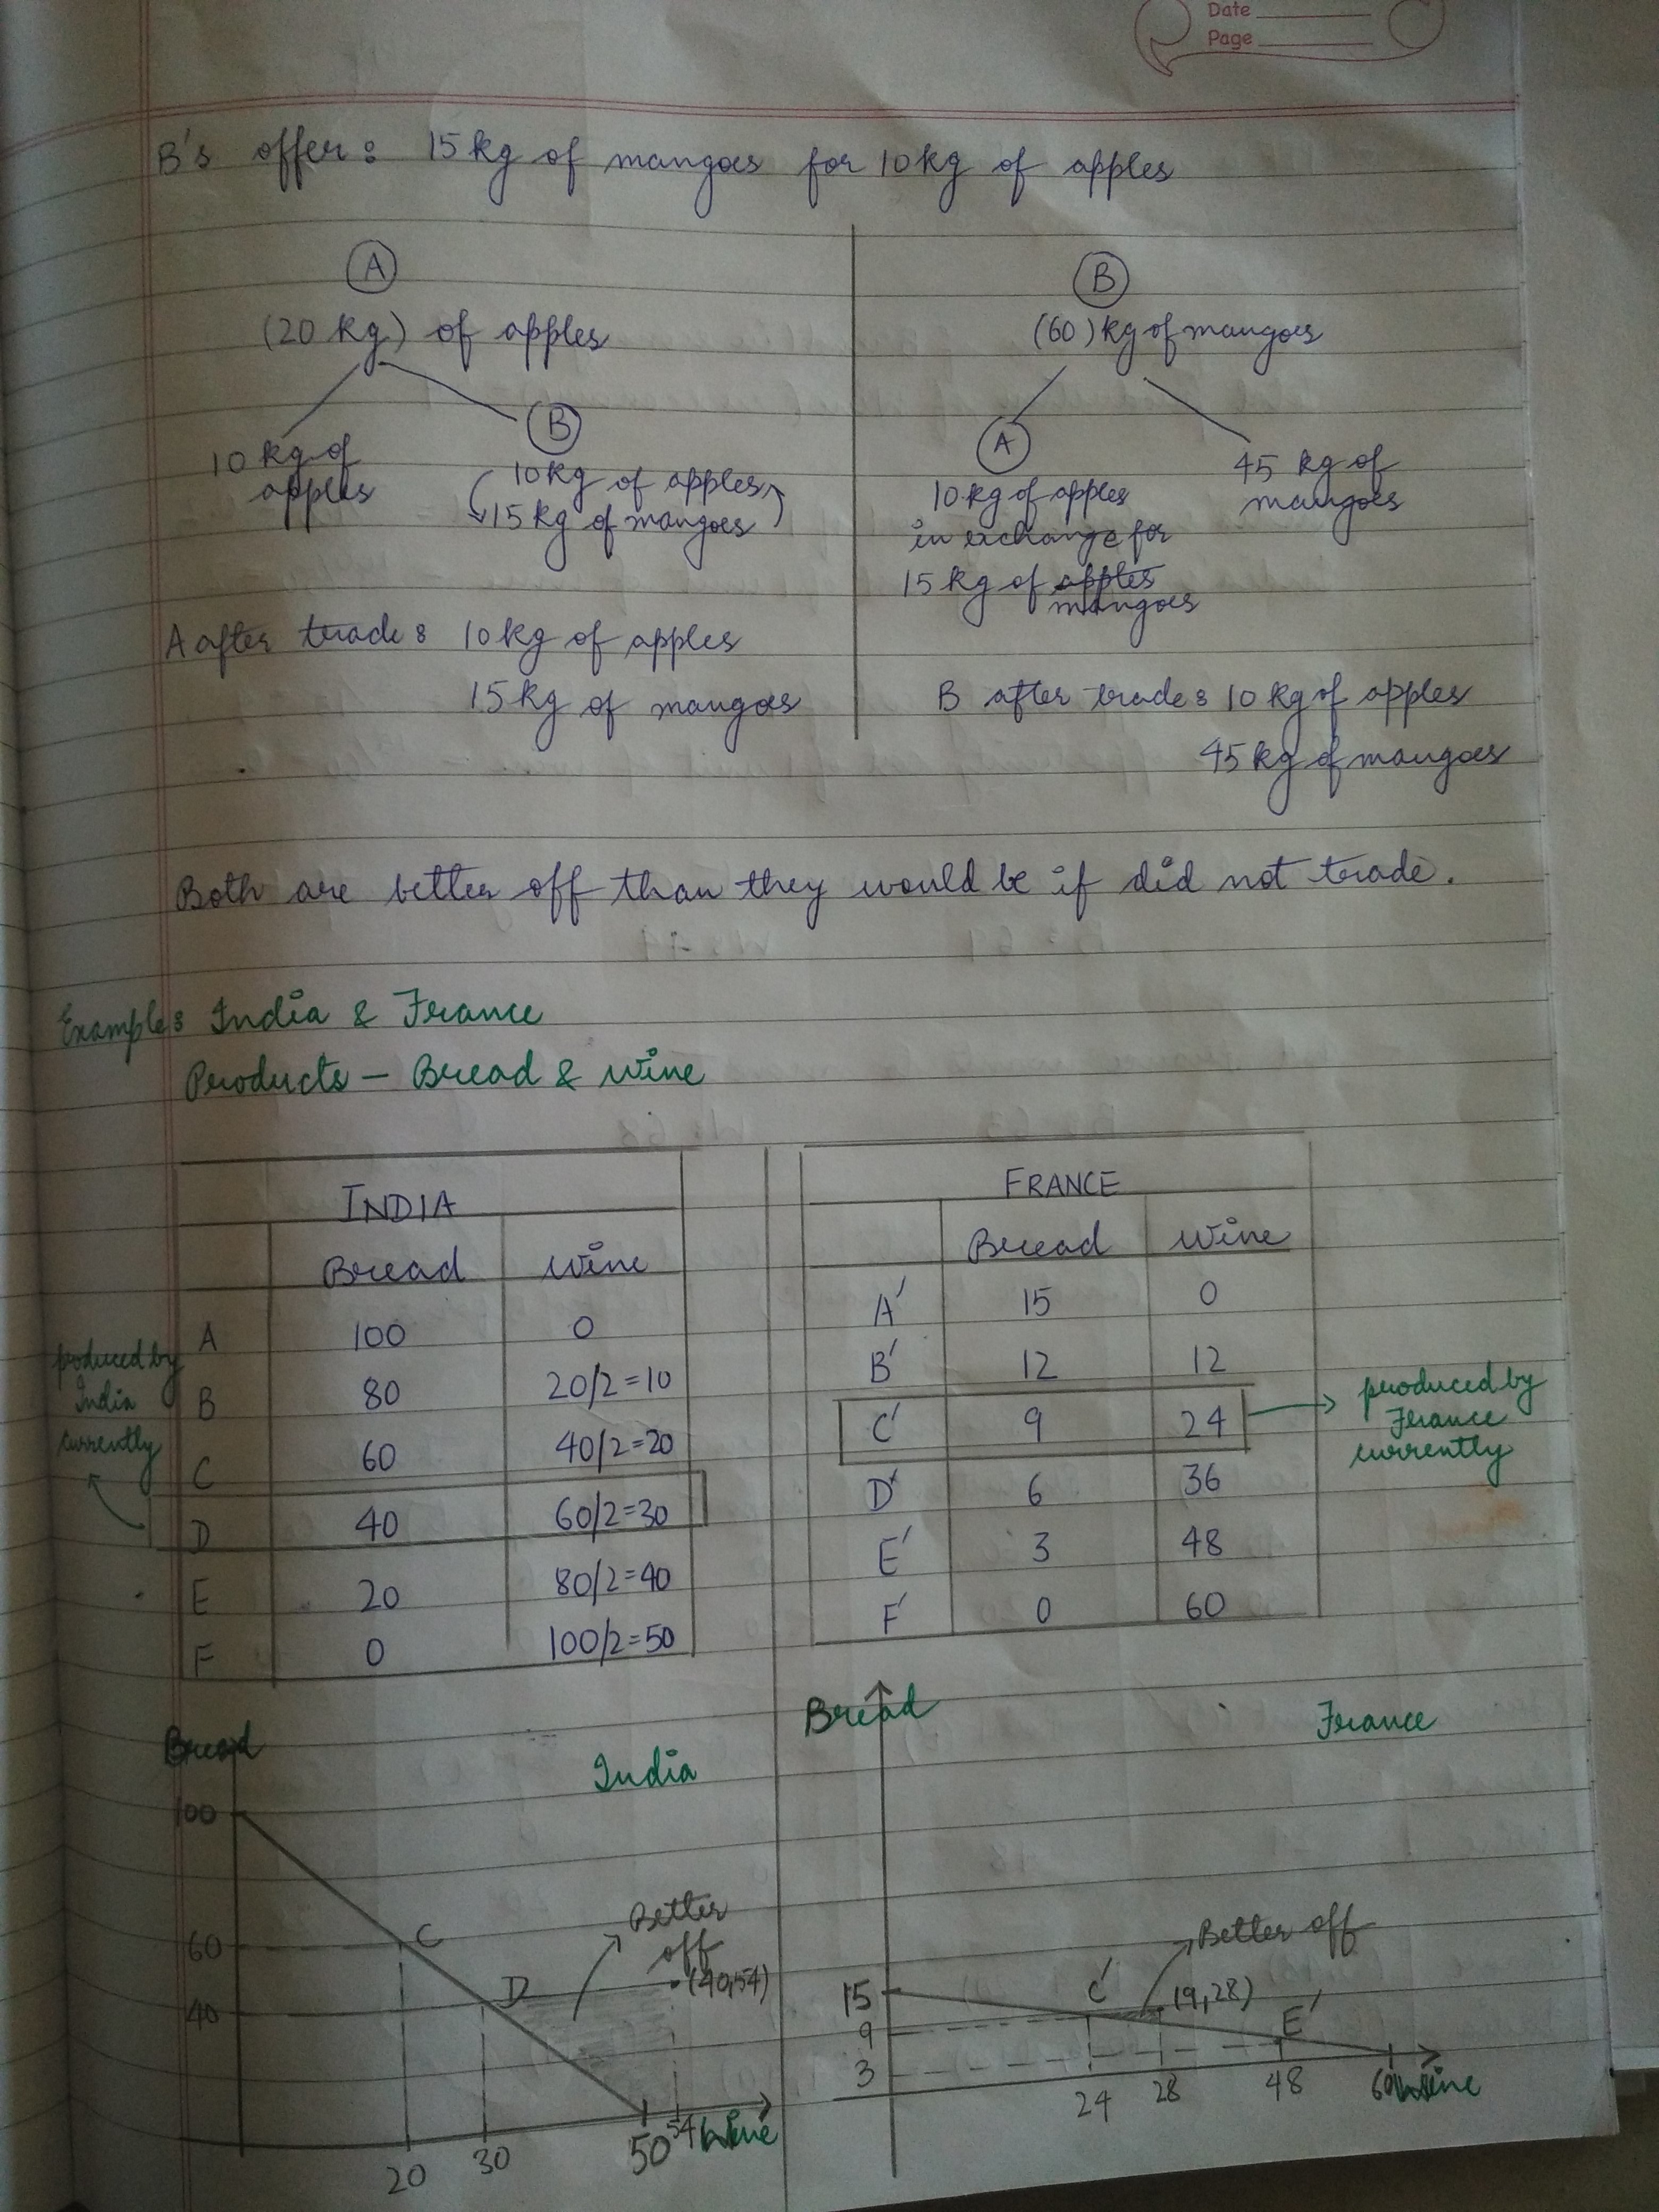 Date
Page
B's offer: 15 kg of mangoes for 10 kg of apples
A
(20 kg) of apples
10 kg of
apples
B
10 kg of apples
15 kg of mangoes
A after trade: 10 kg of apples
15 kg of mangoes
B
(60) kg of mangoes
A
10 kg of apples
in exchange for
15 kg of apples
mangoes
45 kg of
mangoes
B after trade: 10 kg of apples
45 kg of mangoes
Both are better off than they would be if did not trade.
Example: India & France
Products – Bread & Wine
INDIA
Bread Wine
A 100 0
B 80 20/2=10
C 60 40/2=20
D 40 60/2=30
E 20 80/2=40
F 0 100/2=50
produced by
India
currently
FRANCE
Bread Wine
A' 15 0
B' 12 12
C' 9 24
D' 6 36
E' 3 48
F' 0 60
produced by
France
currently
Bread
India
100
60
40
C
D
Better
off
(40,54)
20
30
50
54
Wine
Bread
France
15
9
3
C'
Better off
(9,28)
E'
24
28
48
60
Wine